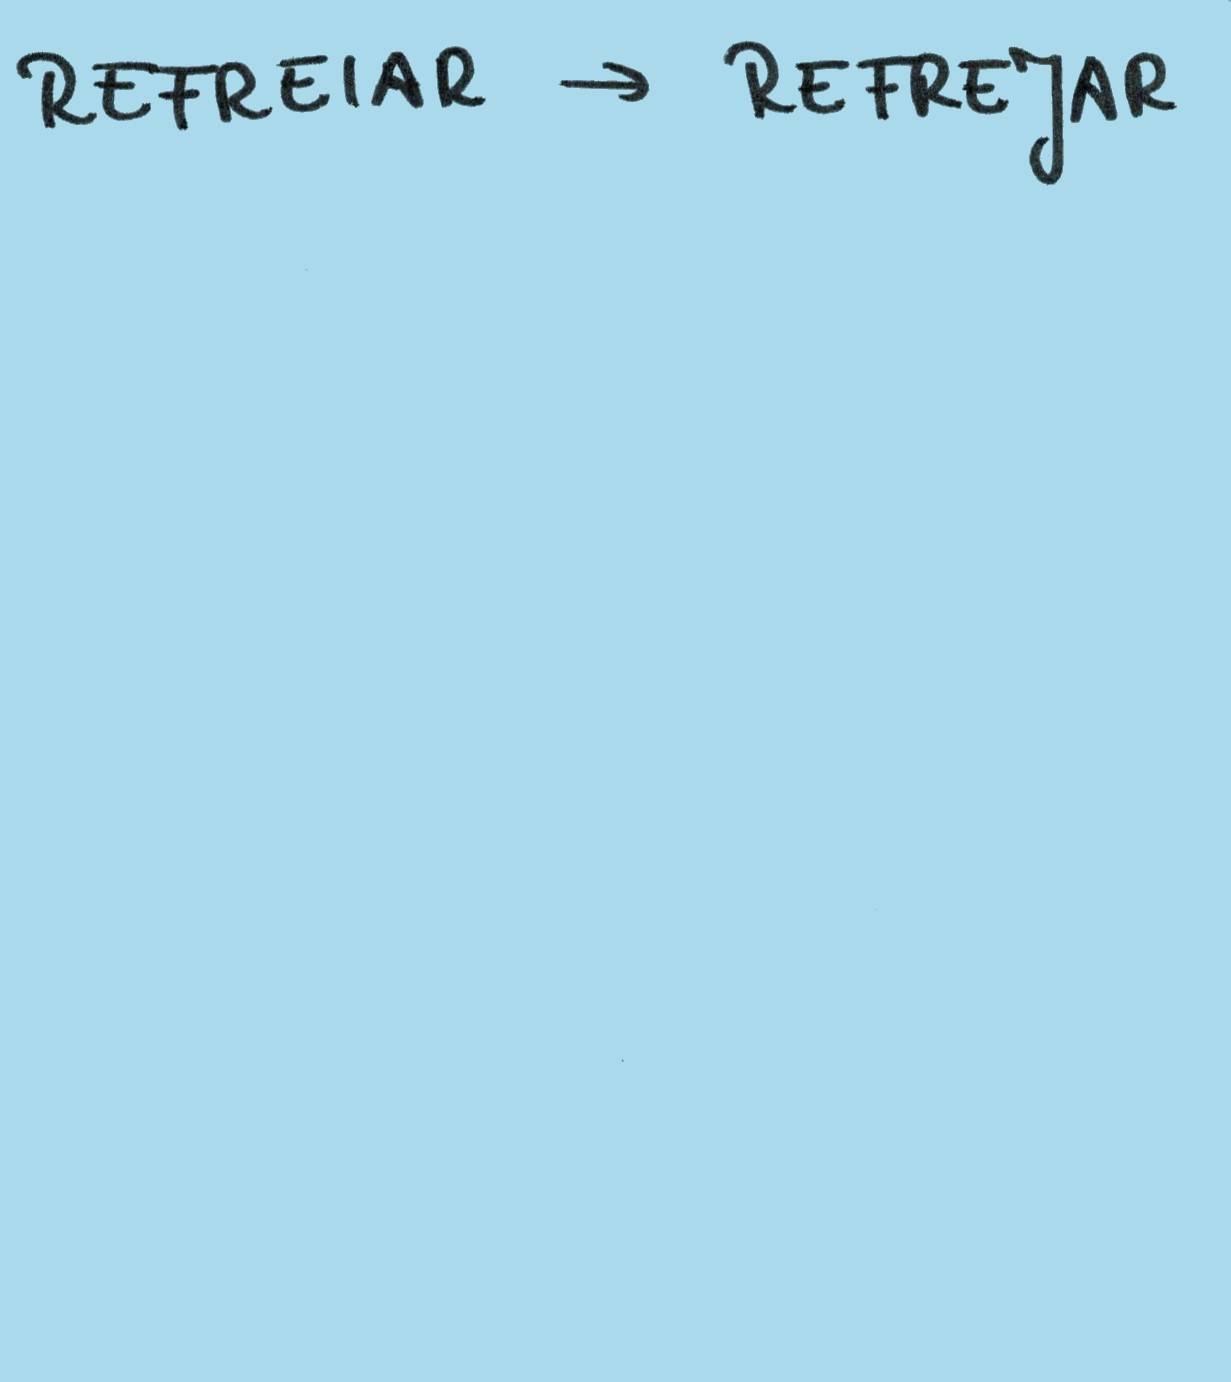 REFREIAR → REFREJAR